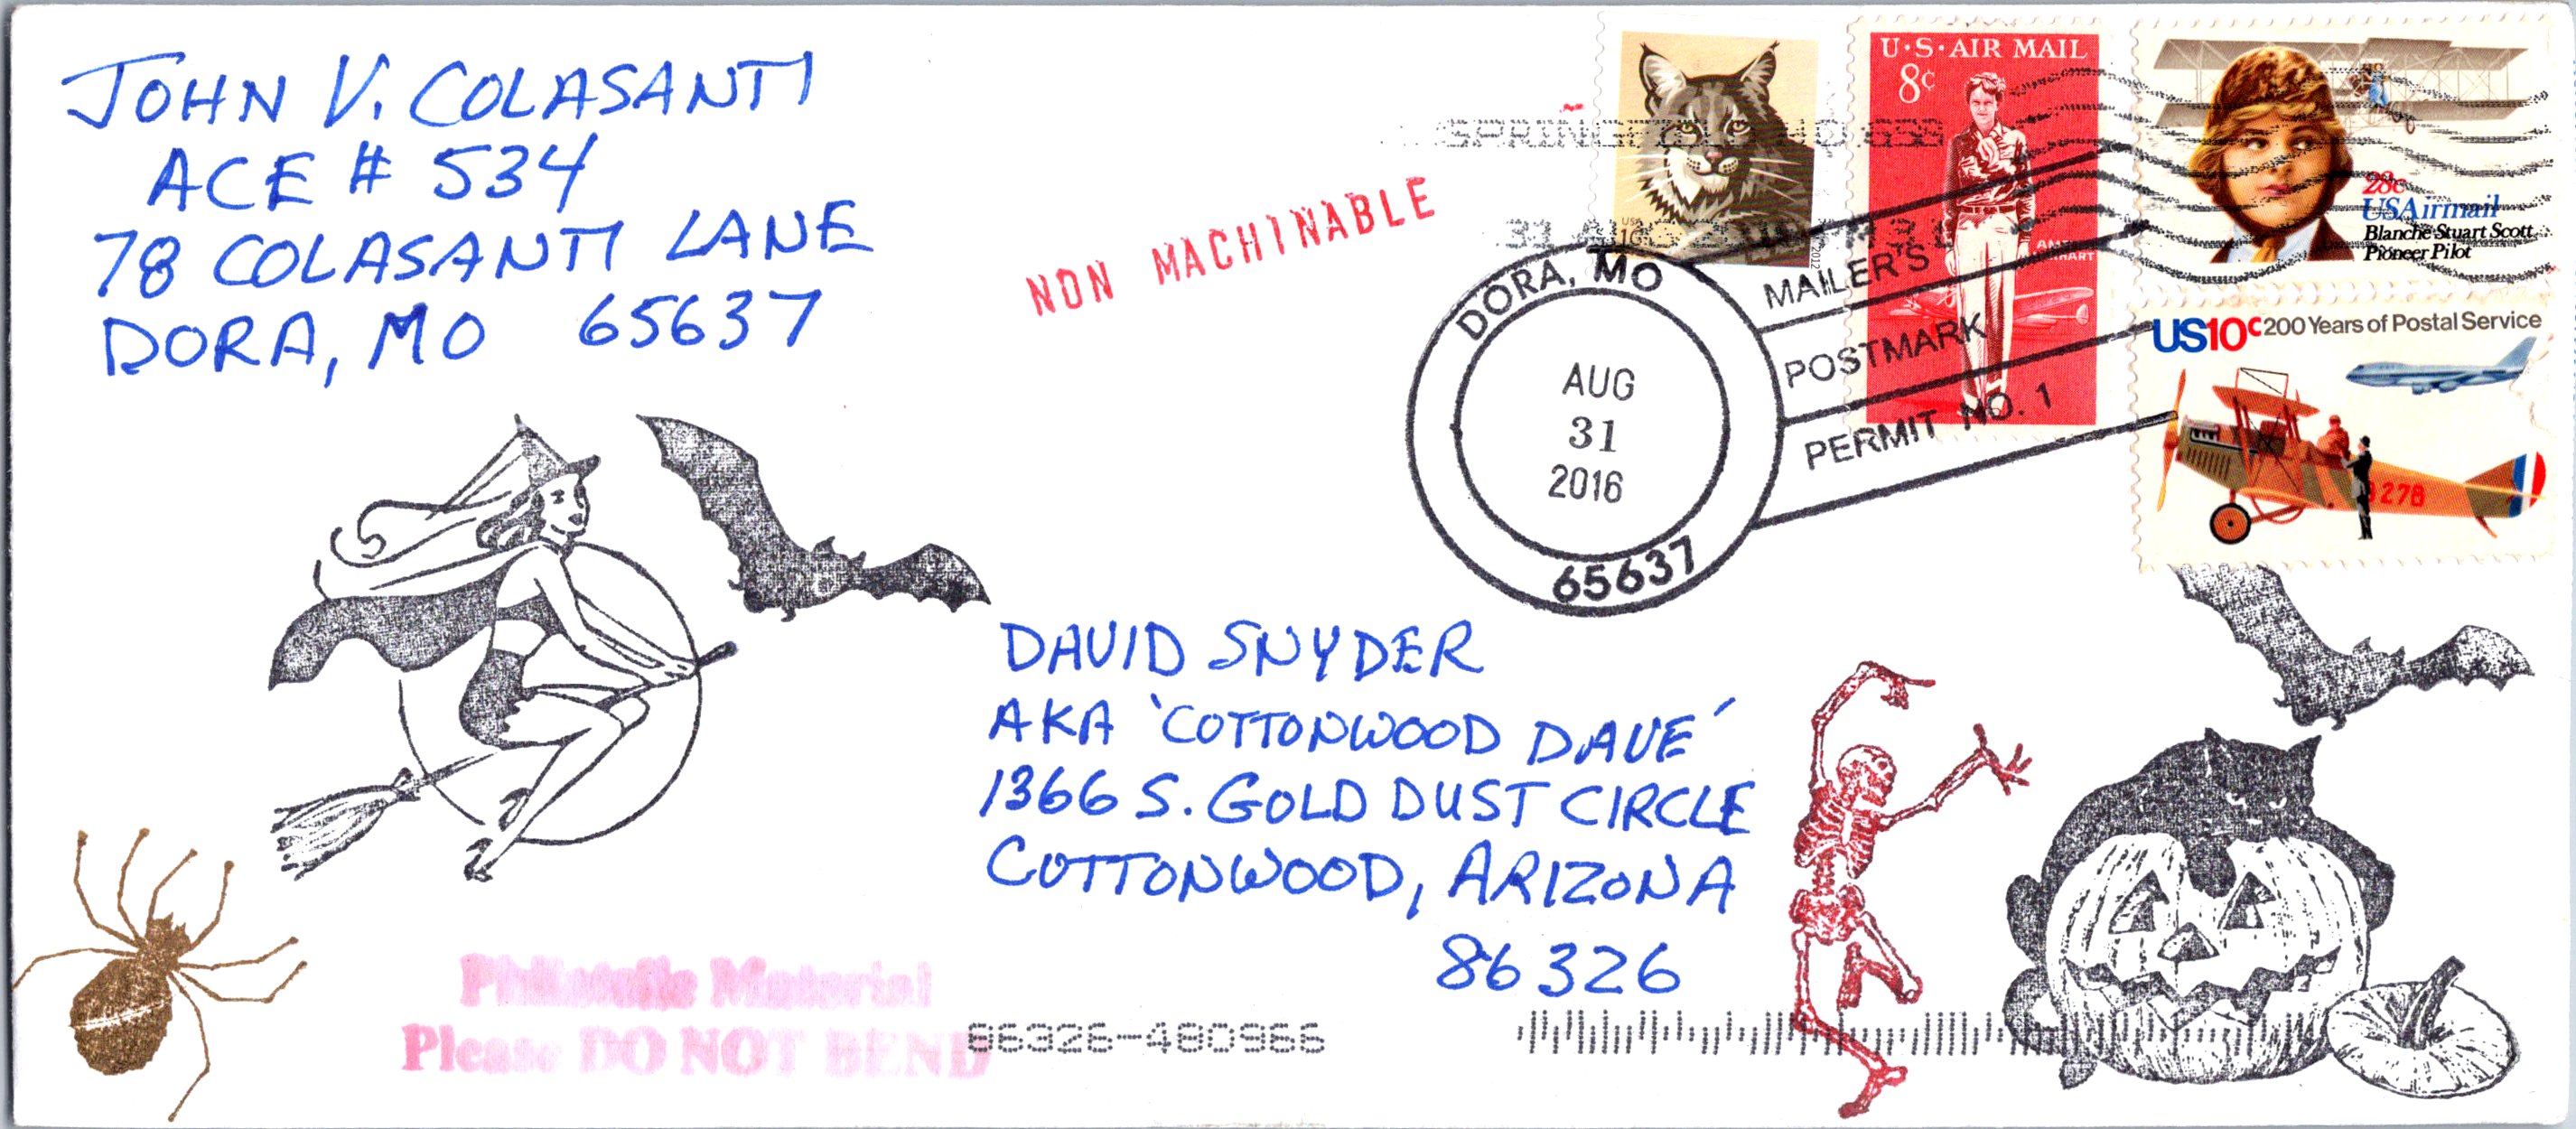 JOHN V. COLASANTI
ACE # 534
78 COLASANTI LANE
DORA, MO 65637
NON MACHINABLE
SPRINGFIELD MO. 658
31 AUG
USA 1c
2012
U·S·AIR MAIL
8¢
28c
USAirmail
Blanche Stuart Scott
Pioneer Pilot
US10c 200 Years of Postal Service
DORA, MO
AUG
31
2016
65637
MAILER'S
POSTMARK
PERMIT NO. 1
DAVID SNYDER
AKA 'COTTONWOOD DAVE'
1366 S. GOLD DUST CIRCLE
COTTONWOOD, ARIZONA
86326
Philatelic Material
Please DO NOT BEND
86326-480966